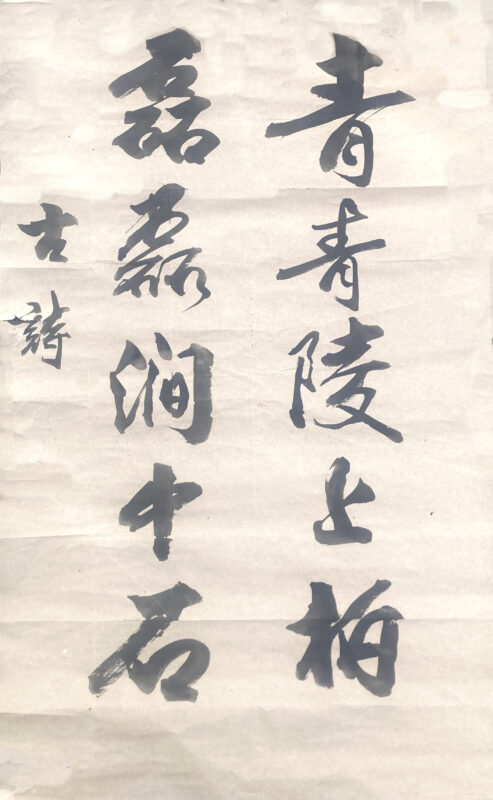 青青陵上柏
磊磊澗中石
古詩